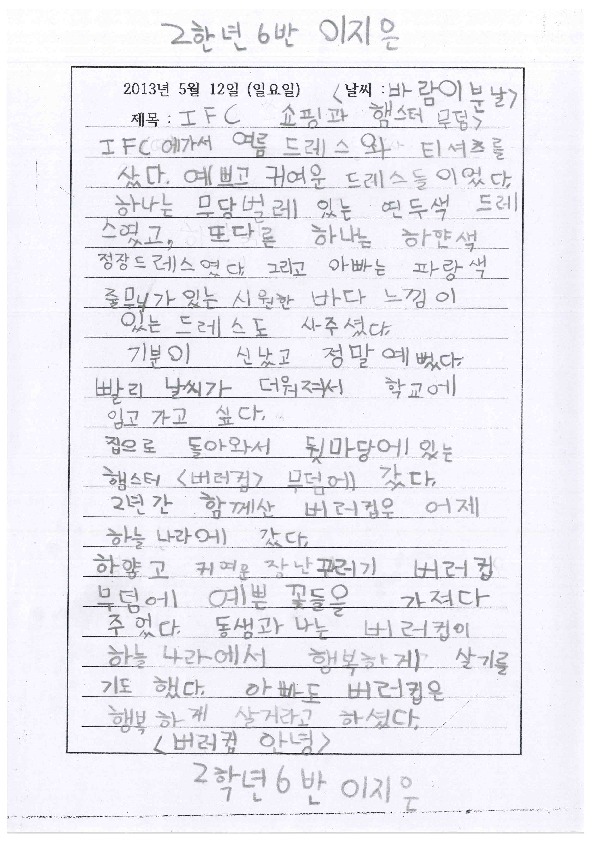 2한년 6반 이지은
2013년 5월 12일 (일요일) <날씨 : 바람이 분날>
제목 : IFC 쇼핑과 햄스터 무덤>
IFC에가서 여름 드레스와 티셔츠를
샀다. 예쁘고 귀여운 드레스들이었다.
하나는 무당벌레 있는 연두색 드레
스였고, 또다른 하나는 하얀색
정장드레스였다. 그리고 아빠는 파랑색
줄무늬가 있는 시원한 바다 느낌이
있는 드레스도 사주셨다.
기분이 신났고 정말 예뻤다.
빨리 날씨가 더워져서 학교에
입고 가고 싶다.
집으로 돌아와서 뒷마당에 있는
햄스터 <버러컵> 무덤에 갔다.
2년간 함께산 버러컵은 어제
하늘 나라에 갔다.
하얗고 귀여운 장난꾸러기 버러컵
무덤에 예쁜 꽃들을 가져다
주었다. 동생과 나는 버러컵이
하늘 나라에서 행복하게 살기를
기도 했다. 아빠도 버러컵은
행복하게 살거라고 하셨다.
<버러컵 안녕>
2학년 6반 이지은